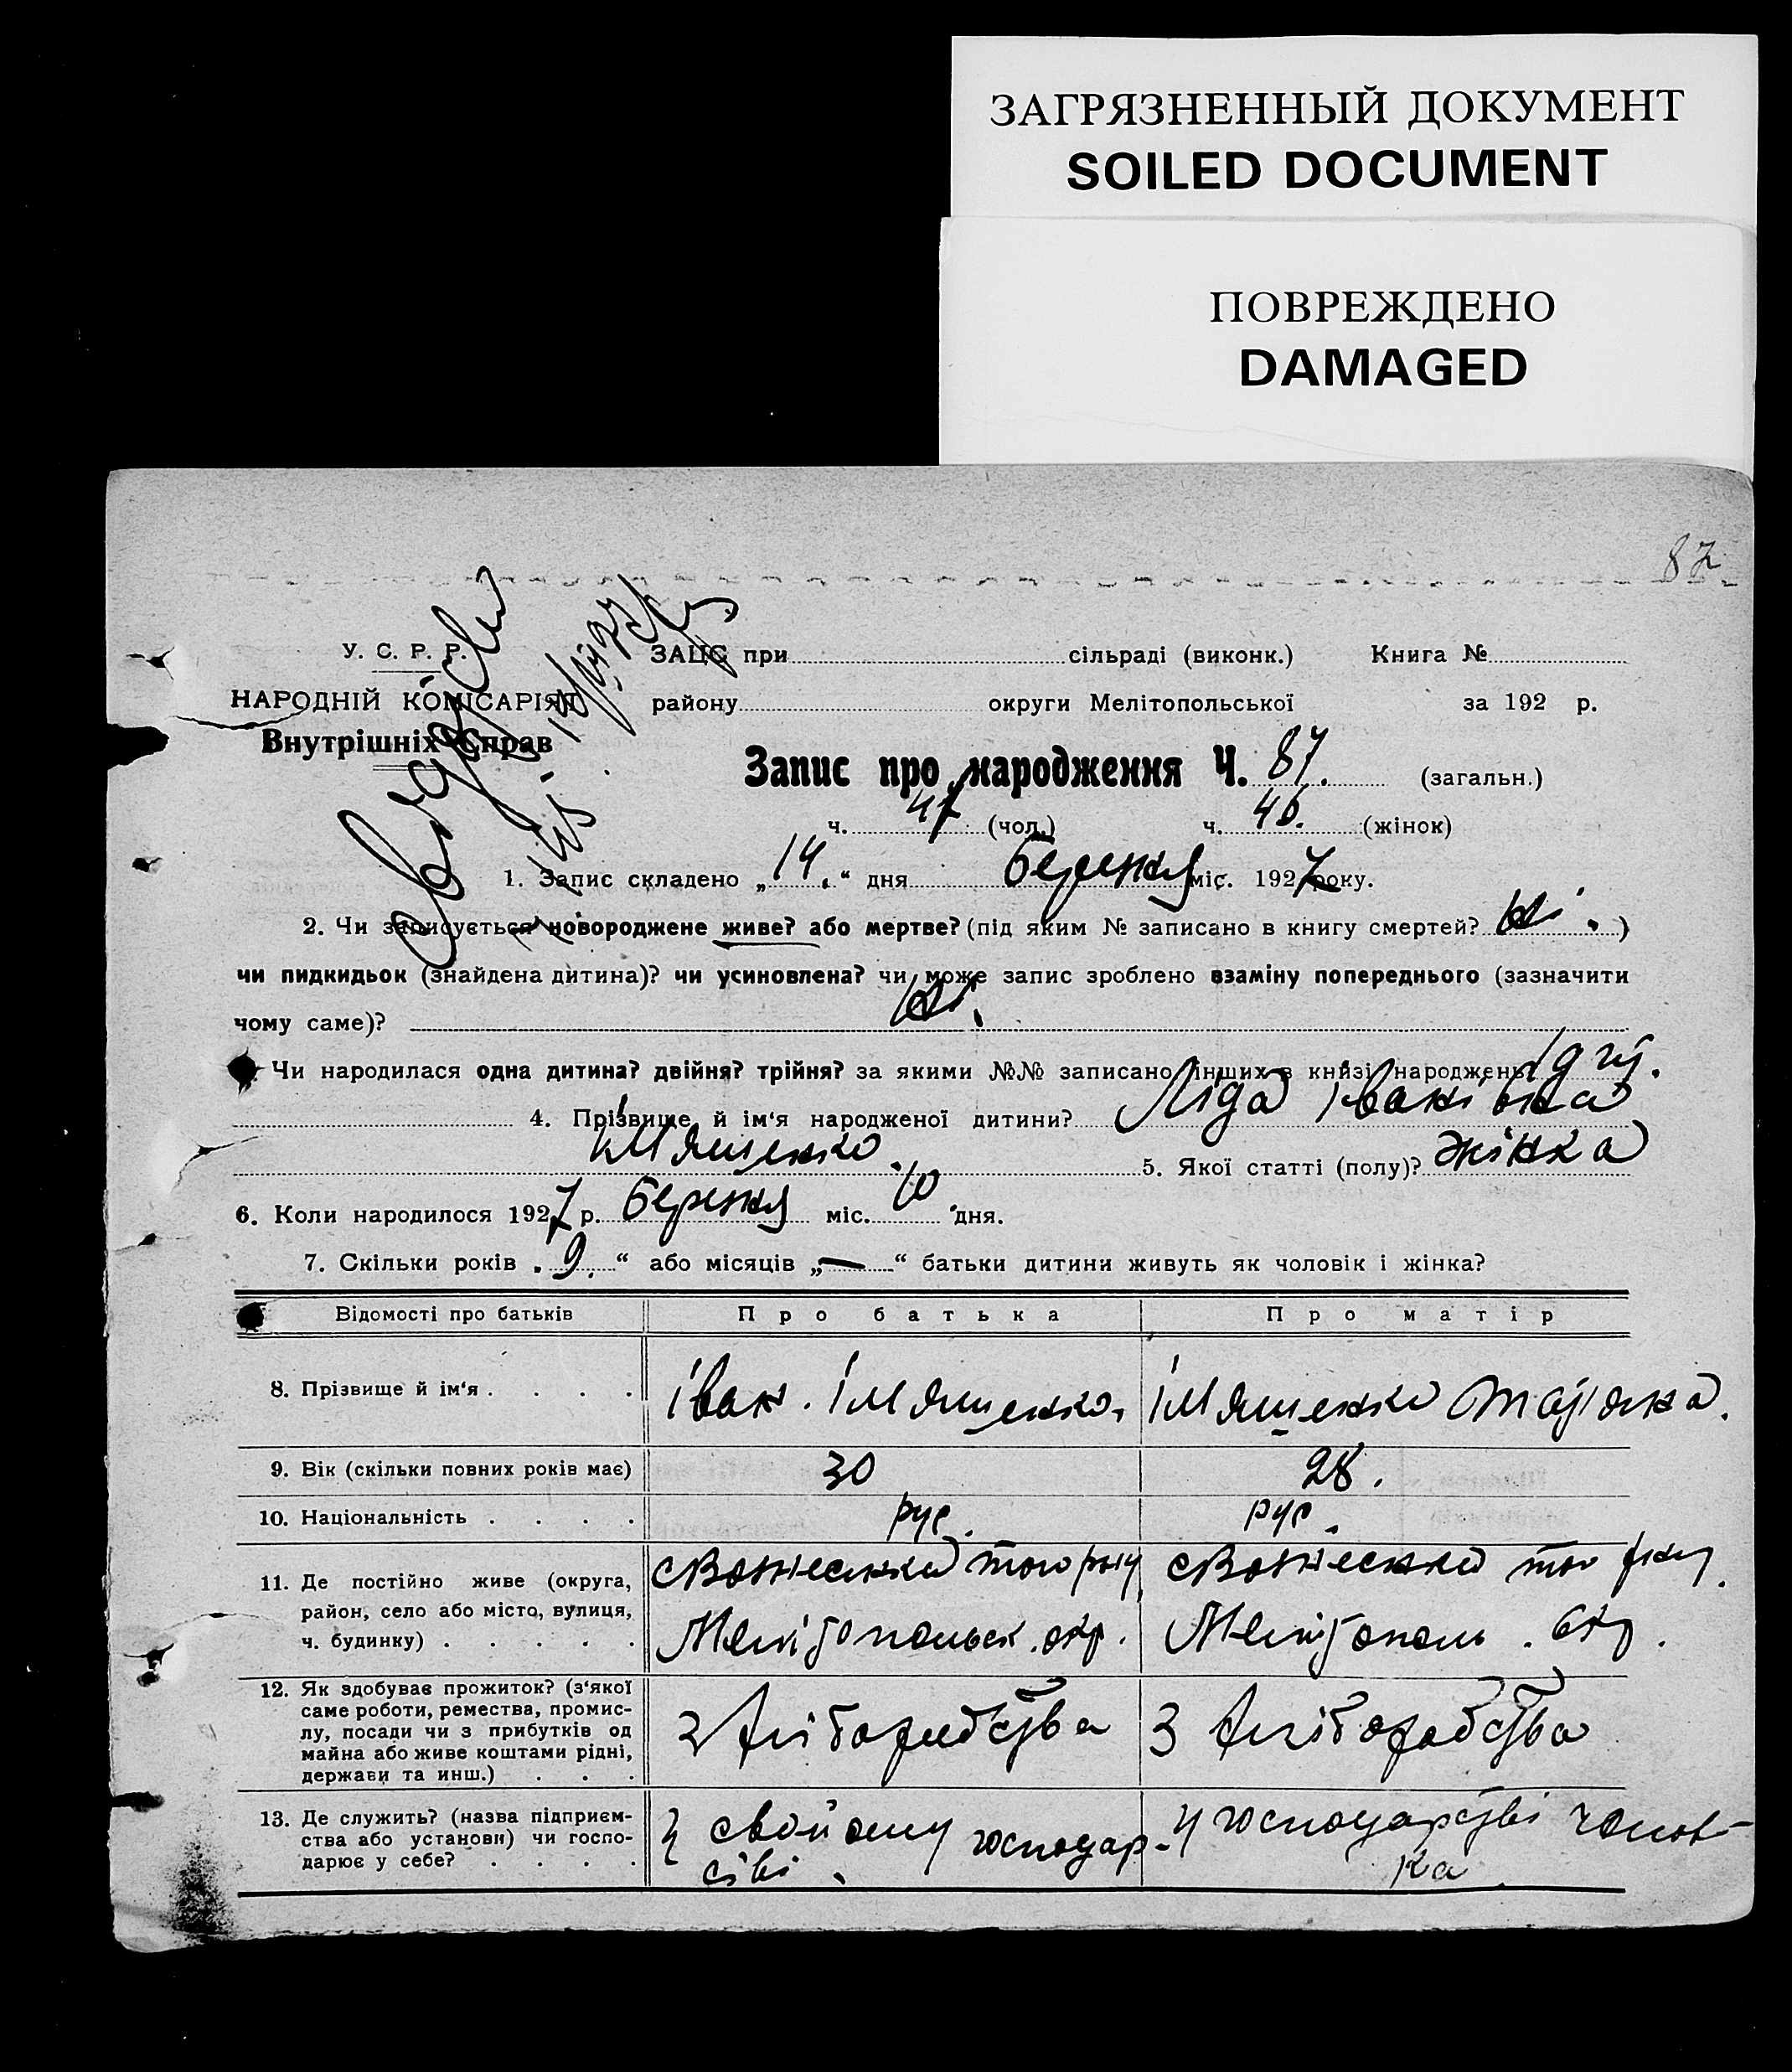 ЗАГРЯЗНЕННЫЙ ДОКУМЕНТ
SOILED DOCUMENT
ПОВРЕЖДЕНО
DAMAGED
87
У. С. Р. Р.
НАРОДНІЙ КОМІСАРІЯТ
Внутрішніх Справ
ЗАЦС при сільраді (виконк.) Книга №
району округи Мелітопольської за 192 р.
Запис про народження Ч. 87. (загальн.)
ч. 41 (чол.) ч. 46. (жінок)
1. Запис складено „14.“ дня березня міс. 1927 року.
2. Чи записується новороджене живе? або мертве? (під яким № записано в книгу смертей? ні.)
чи пидкидьок (знайдена дитина)? чи усиновлена? чи може запис зроблено взаміну попереднього (зазначити
чому саме)? ні.
Чи народилася одна дитина? двійня? трійня? за якими №№ записано інших в книзі народжень
4. Прізвище й ім'я народженої дитини? Ліда Іванівна
5. Якої статті (полу)? жінка
6. Коли народилося 1927 р. березня міс. 10 дня.
7. Скільки років „9.“ або місяців „—“ батьки дитини живуть як чоловік і жінка?
Відомості про батьків Про батька Про матір
8. Прізвище й ім'я . . . . Іван
9. Вік (скільки повних років має) 30 28.
10. Національність . . . . рус. рус.
11. Де постійно живе (округа,
район, село або місто, вулиця,
ч. будинку) . . . . .
Мелітопольск. окр. Мелітополь. окр.
12. Як здобуває прожиток? (з'якої
саме роботи, ремества, промис-
лу, посади чи з прибутків од
майна або живе коштами рідні,
держави та инш.) . . .
З хліборобства З хліборобства
13. Де служить? (назва підприєм-
ства або установи) чи госпо-
дарює у себе? . . . .
У свойому господар-
сіві.
У господарстві чолов-
ка